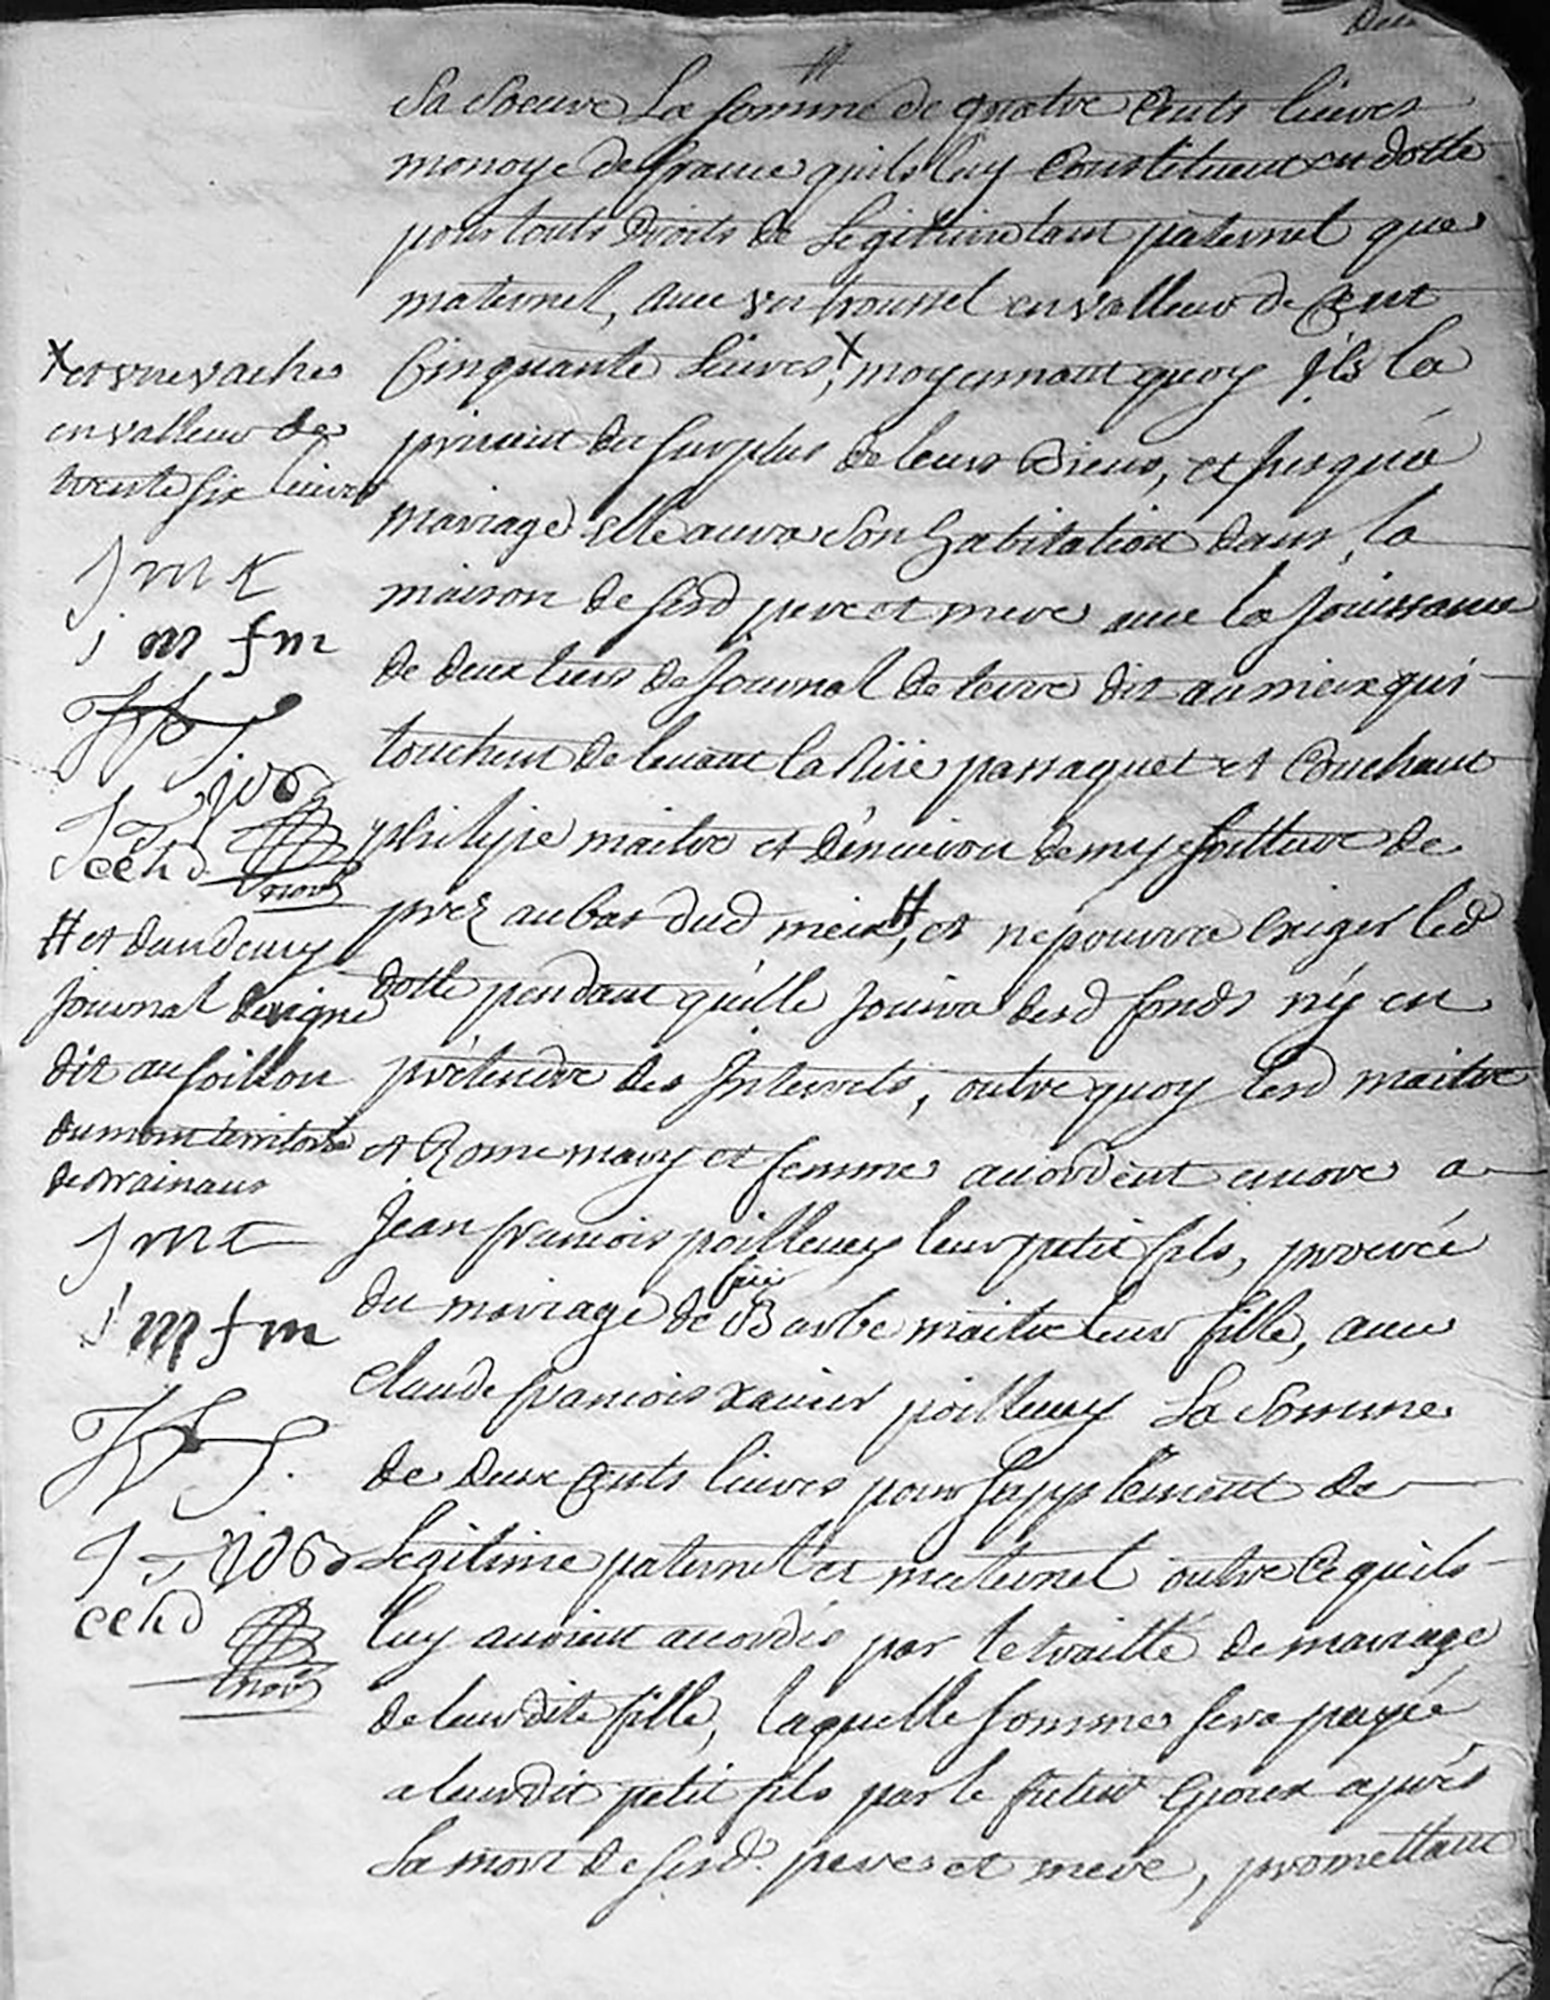 sa soeure La somme de quatre Cents livres
monoye de france quils luy Constituent en dotte
pour touts droits de Legitime tant paternel que
maternel, avec un troussel en valleur de Cent
Cinquante livres, x moyennant quoy ils la
privent du surplus de leurs Biens, et jusqu'a
mariage elle aura son habitation dans la
maison de sesd pere et mere avec la Jouissance
de deux tiers de Journal de terre dit au meix qui
touchent de levant la passaquet et Couchant
philipe maitre et d'environ demye soitture de
prez au bas dud meix #, et ne pourra Exiger led
dotte pendant qu'elle Jouira desd fonds n'y en
prétendre des Interrets, outre quoy lesd maitre
et Rome mary et femme accordent encore a
Jean francois poilleuey leur petit fils, procréé
du mariage de fuë Barbe maitre leur fille, avec
Claude francois xavier poilleuey La Somme
de deux Cents livres pour supplement de
Legitime paternel et maternel outre Ce quils
luy avoient accordés par le traitté de mariage
de leurdite fille, laquelle somme sera payée
a leurdit petit fils par le futur Epoux après
La mort de sesd. peres et mere, promettant
x et une vache
en valleur de
trente six livres
j m r
j m f m
jvo
cchd
# et d'un demy
Journal de vigne
dit au soillon
du mont territoire
de
j m r
j m f m
cchd